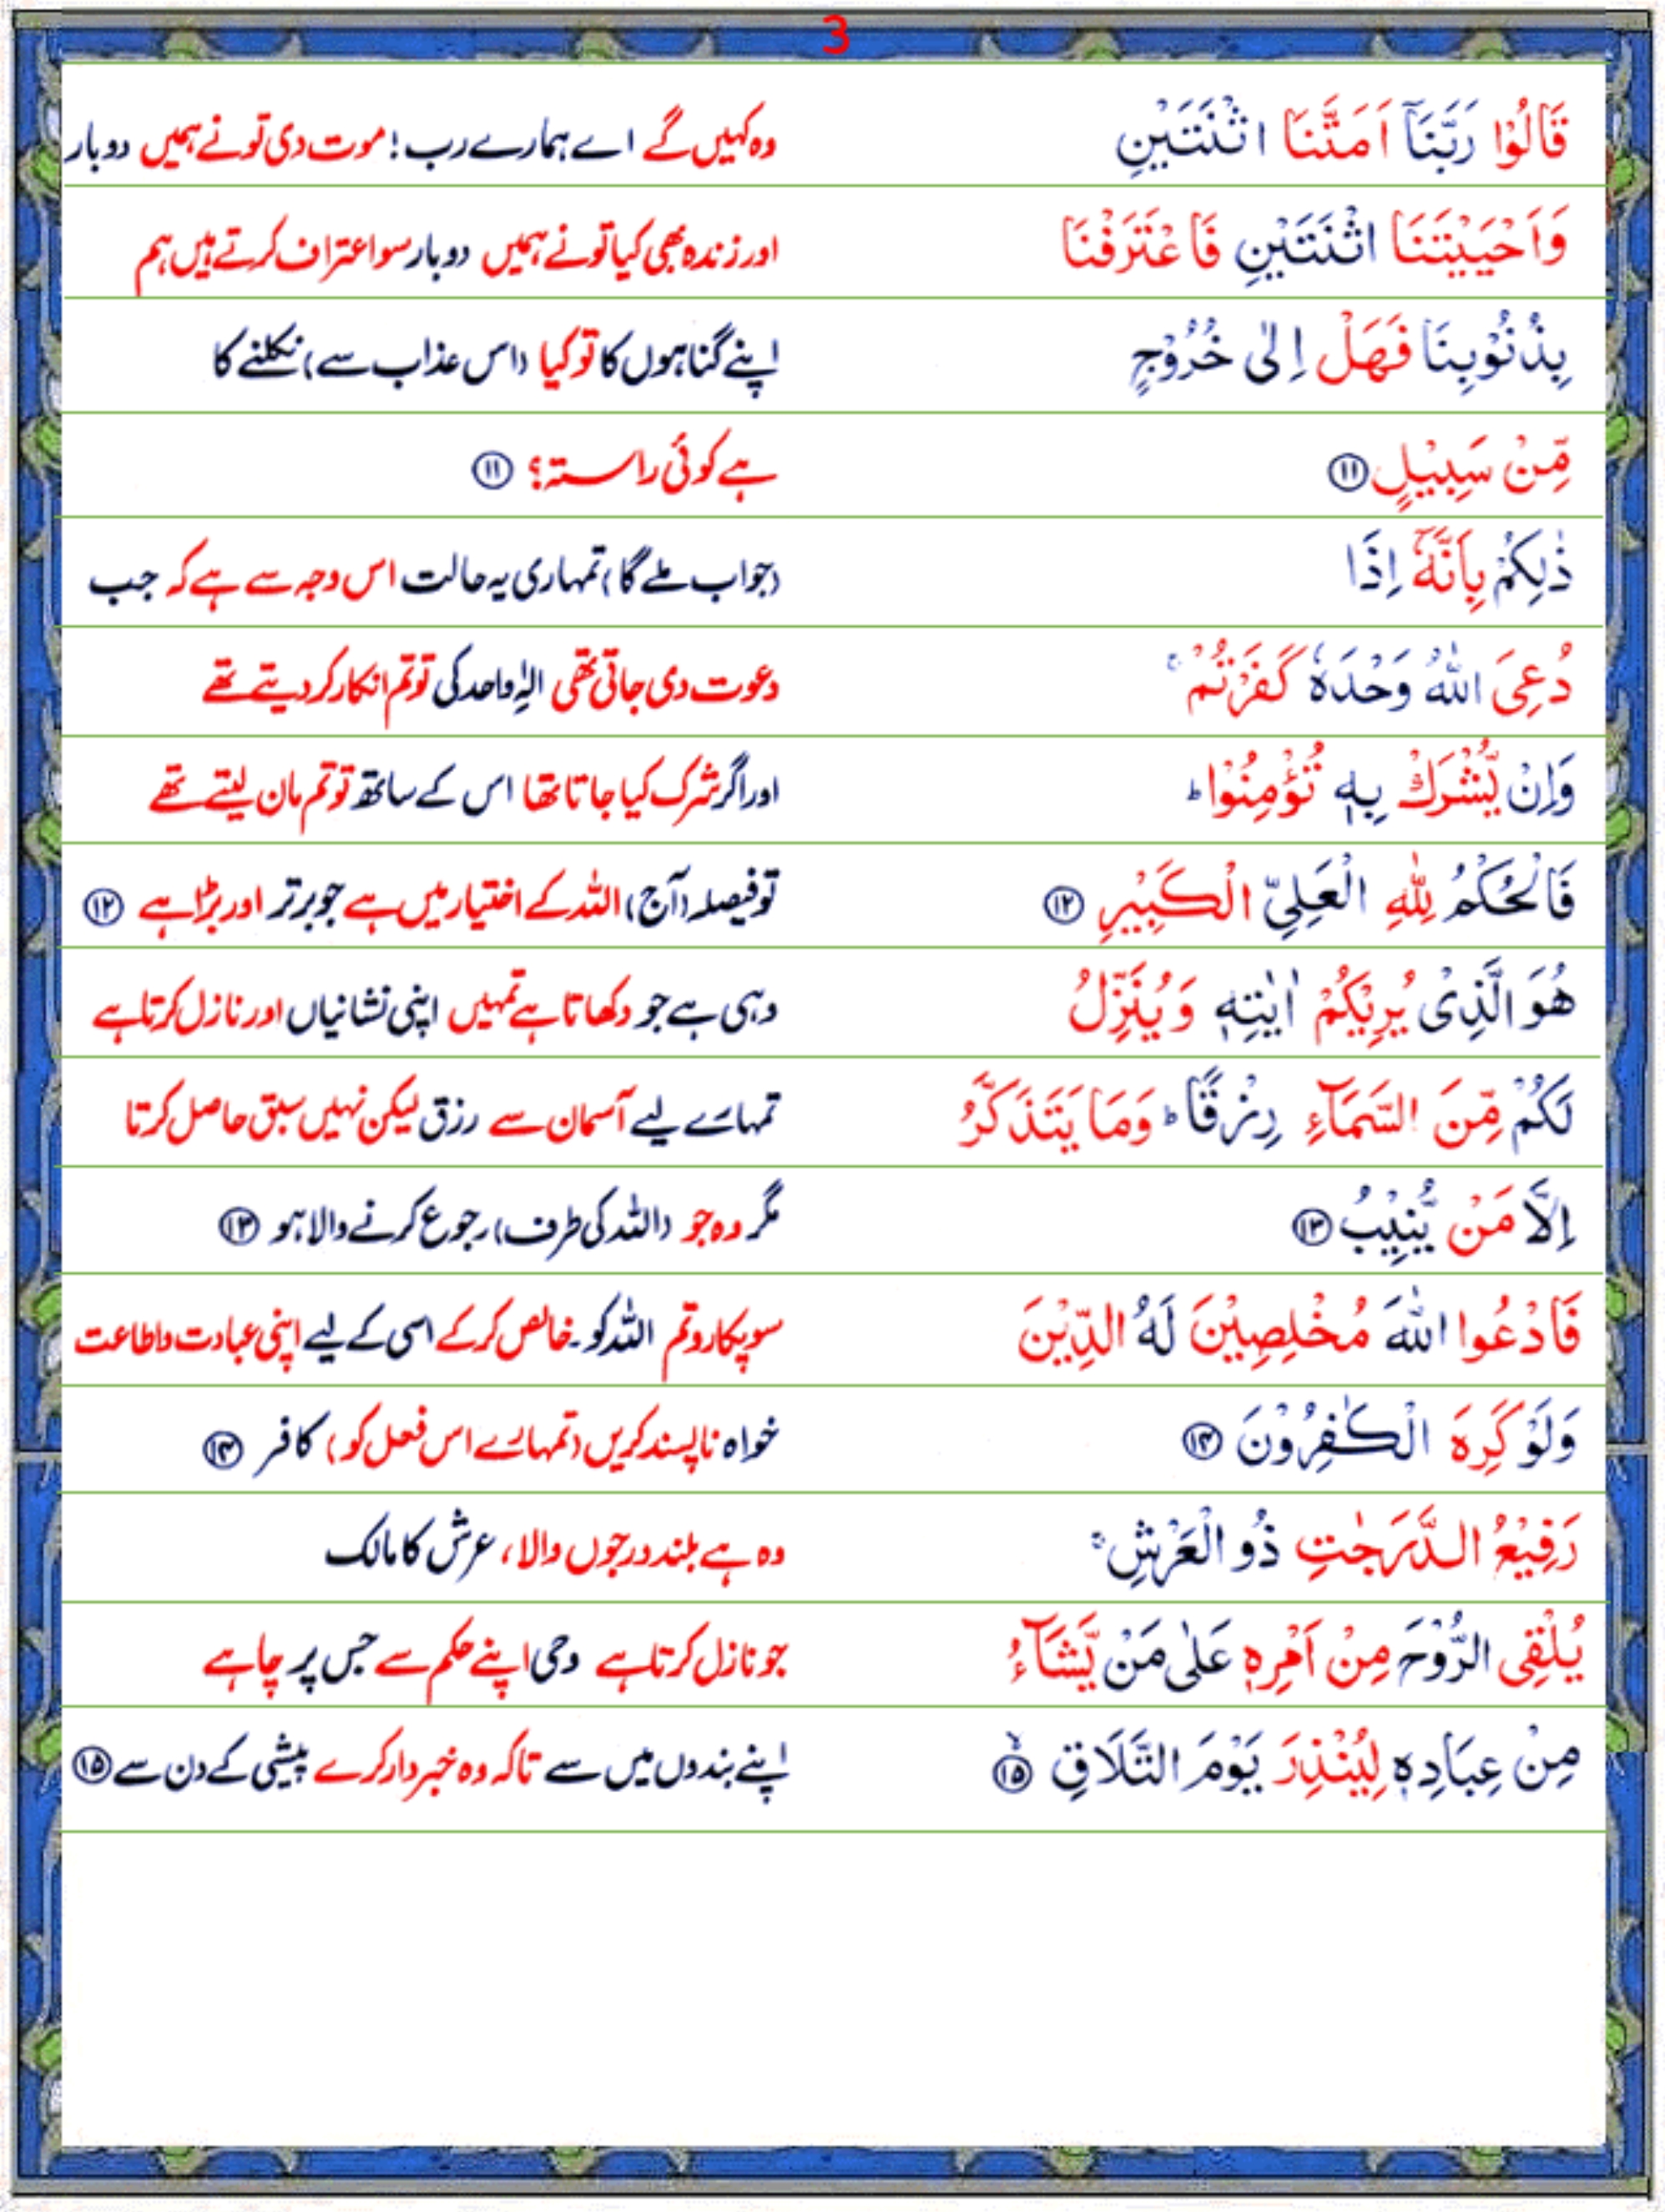 3
قَالُوْا رَبَّنَاۤ اَمَتَّنَا اثْنَتَيْنِ وہ کہیں گے اے ہمارے رب! موت دی تو نے ہمیں دوبار
وَاَحْيَيْتَنَا اثْنَتَيْنِ فَاعْتَرَفْنَا اور زندہ بھی کیا تو نے ہمیں دوبار سو اعتراف کرتے ہیں ہم
بِذُنُوْبِنَا فَهَلْ اِلٰى خُرُوْجٍ اپنے گناہوں کا تو کیا (اس عذاب سے) نکلنے کا
مِّنْ سَبِيْلٍ ⑪ ہے کوئی راستہ؟ ⑪
ذٰلِكُمْ بِاَنَّهٗۤ اِذَا (جواب ملے گا) تمہاری یہ حالت اس وجہ سے ہے کہ جب
دُعِىَ اللّٰهُ وَحْدَهٗ كَفَرْتُمْ ۚ دعوت دی جاتی تھی الٰہِ واحد کی تو تم انکار کر دیتے تھے
وَاِنْ يُّشْرَكْ بِهٖ تُؤْمِنُوْا ؕ اور اگر شرک کیا جاتا تھا اس کے ساتھ تو تم مان لیتے تھے
فَالْحُكْمُ لِلّٰهِ الْعَلِىِّ الْكَبِيْرِ ⑫ تو فیصلہ (آج) اللہ کے اختیار میں ہے جو برتر اور بڑا ہے ⑫
هُوَ الَّذِىْ يُرِيْكُمْ اٰيٰتِهٖ وَيُنَزِّلُ وہی ہے جو دکھاتا ہے تمہیں اپنی نشانیاں اور نازل کرتا ہے
لَكُمْ مِّنَ السَّمَآءِ رِزْقًا ؕ وَمَا يَتَذَكَّرُ تمہارے لیے آسمان سے رزق لیکن نہیں سبق حاصل کرتا
اِلَّا مَنْ يُّنِيْبُ ⑬ مگر وہ جو (اللہ کی طرف) رجوع کرنے والا ہو ⑬
فَادْعُوا اللّٰهَ مُخْلِصِيْنَ لَهُ الدِّيْنَ سو پکارو تم اللہ کو۔ خالص کر کے اسی کے لیے اپنی عبادت و اطاعت
وَلَوْ كَرِهَ الْكٰفِرُوْنَ ⑭ خواہ ناپسند کریں (تمہارے اس فعل کو) کافر ⑭
رَفِيْعُ الدَّرَجٰتِ ذُو الْعَرْشِ ۚ وہ ہے بلند درجوں والا، عرش کا مالک
يُلْقِى الرُّوْحَ مِنْ اَمْرِهٖ عَلٰى مَنْ يَّشَآءُ جو نازل کرتا ہے وحی اپنے حکم سے جس پر چاہے
مِنْ عِبَادِهٖ لِيُنْذِرَ يَوْمَ التَّلَاقِ ۙ ⑮ اپنے بندوں میں سے تاکہ وہ خبردار کرے پیشی کے دن سے ⑮